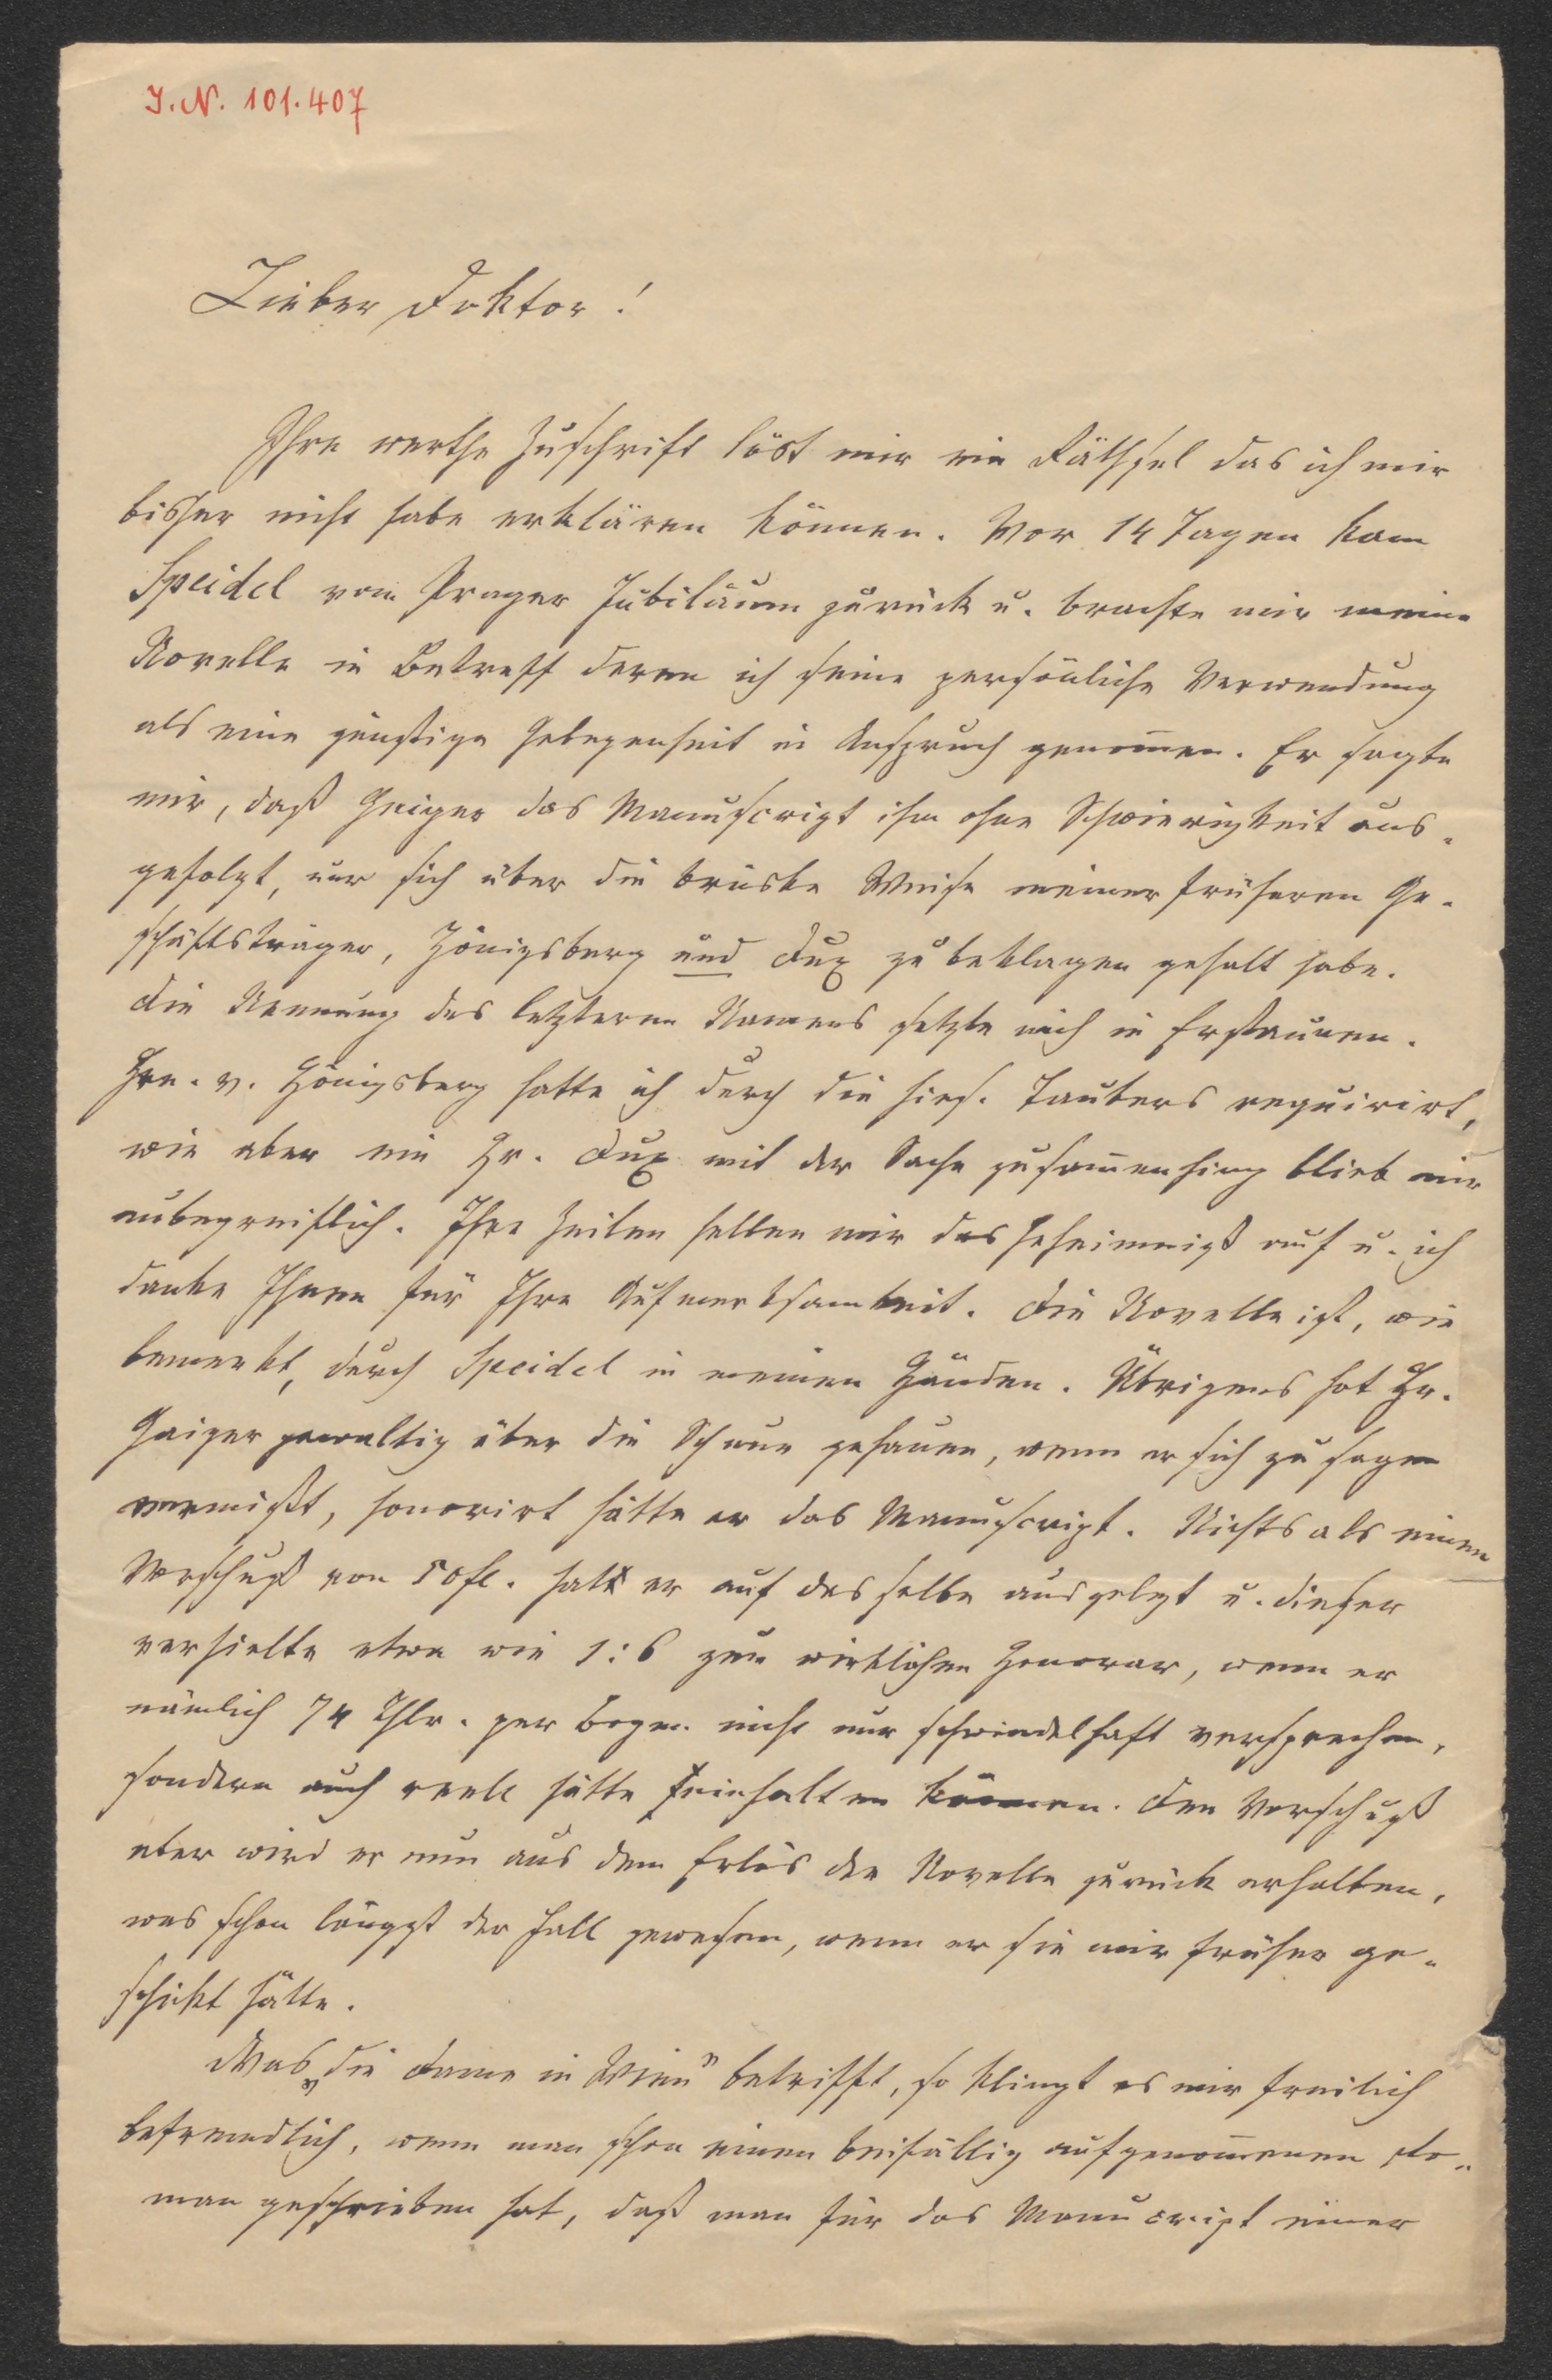 I.N. 101.407
Lieber Doktor!
Ihre werthe Zuschrift löst mir ein Räthsel das ich mir
bisher nicht habe erklären können. Vor 14 Tagen kam
Speidel vom Prager Jubiläum zurück u. brachte mir meine
Novelle in Betreff deren ich seine persönliche Verwendung
als eine günstige Gelegenheit in Anspruch genom̄en. Er sagte
mir, daß Geiger das Manuscript ihm ohne Schwierigkeit aus-
gefolgt, nur sich über die brüske Weise meiner früheren Ge-
schäftsträger, Hönigsberg und Dux zu beklagen gehabt habe.
Die Nennung des letzteren Namens setzte mich in Erstaunen.
Hrn. v. Hönigsberg hatte ich durch die hies. Taubers requirirt,
wie aber ein Hr. Dux mit der Sache zusam̄enhing blieb mir
unbegreiflich. Ihre Zeilen hellen mir das Geheimniß auf u. ich
danke Ihnen für Ihre Aufmerksamkeit. Die Novelle ist, wie
bemerkt, durch Speidel in meinen Händen. Übrigens hat Hr.
Geiger gewaltig über die Schnur gehauen, wenn er sich zu sagen
vermißt, honorirt hätte er das Manuscript. Nichts als einen
Vorschuß von 50 fl. hat er auf dasselbe ausgelegt u. dieser
verhielte etwa wie 1:6 zum wirklichen Honorar, wenn er
nämlich 74 Thlr. per Bogen nicht nur schwindelhaft versprechen,
sondern auch reell hätte einhalten können. Den Vorschuß
aber wird er nun aus dem Erlös der Novelle zurück erhalten,
was schon längst der Fall gewesen, wenn er sie mir früher ge-
schickt hätte.
Was „die Dame in Wien" betrifft, so klingt es mir freilich
befremdlich, wenn man schon einen beifällig aufgenom̄enen Ro-
man geschrieben hat, daß man für das Manuscript einer